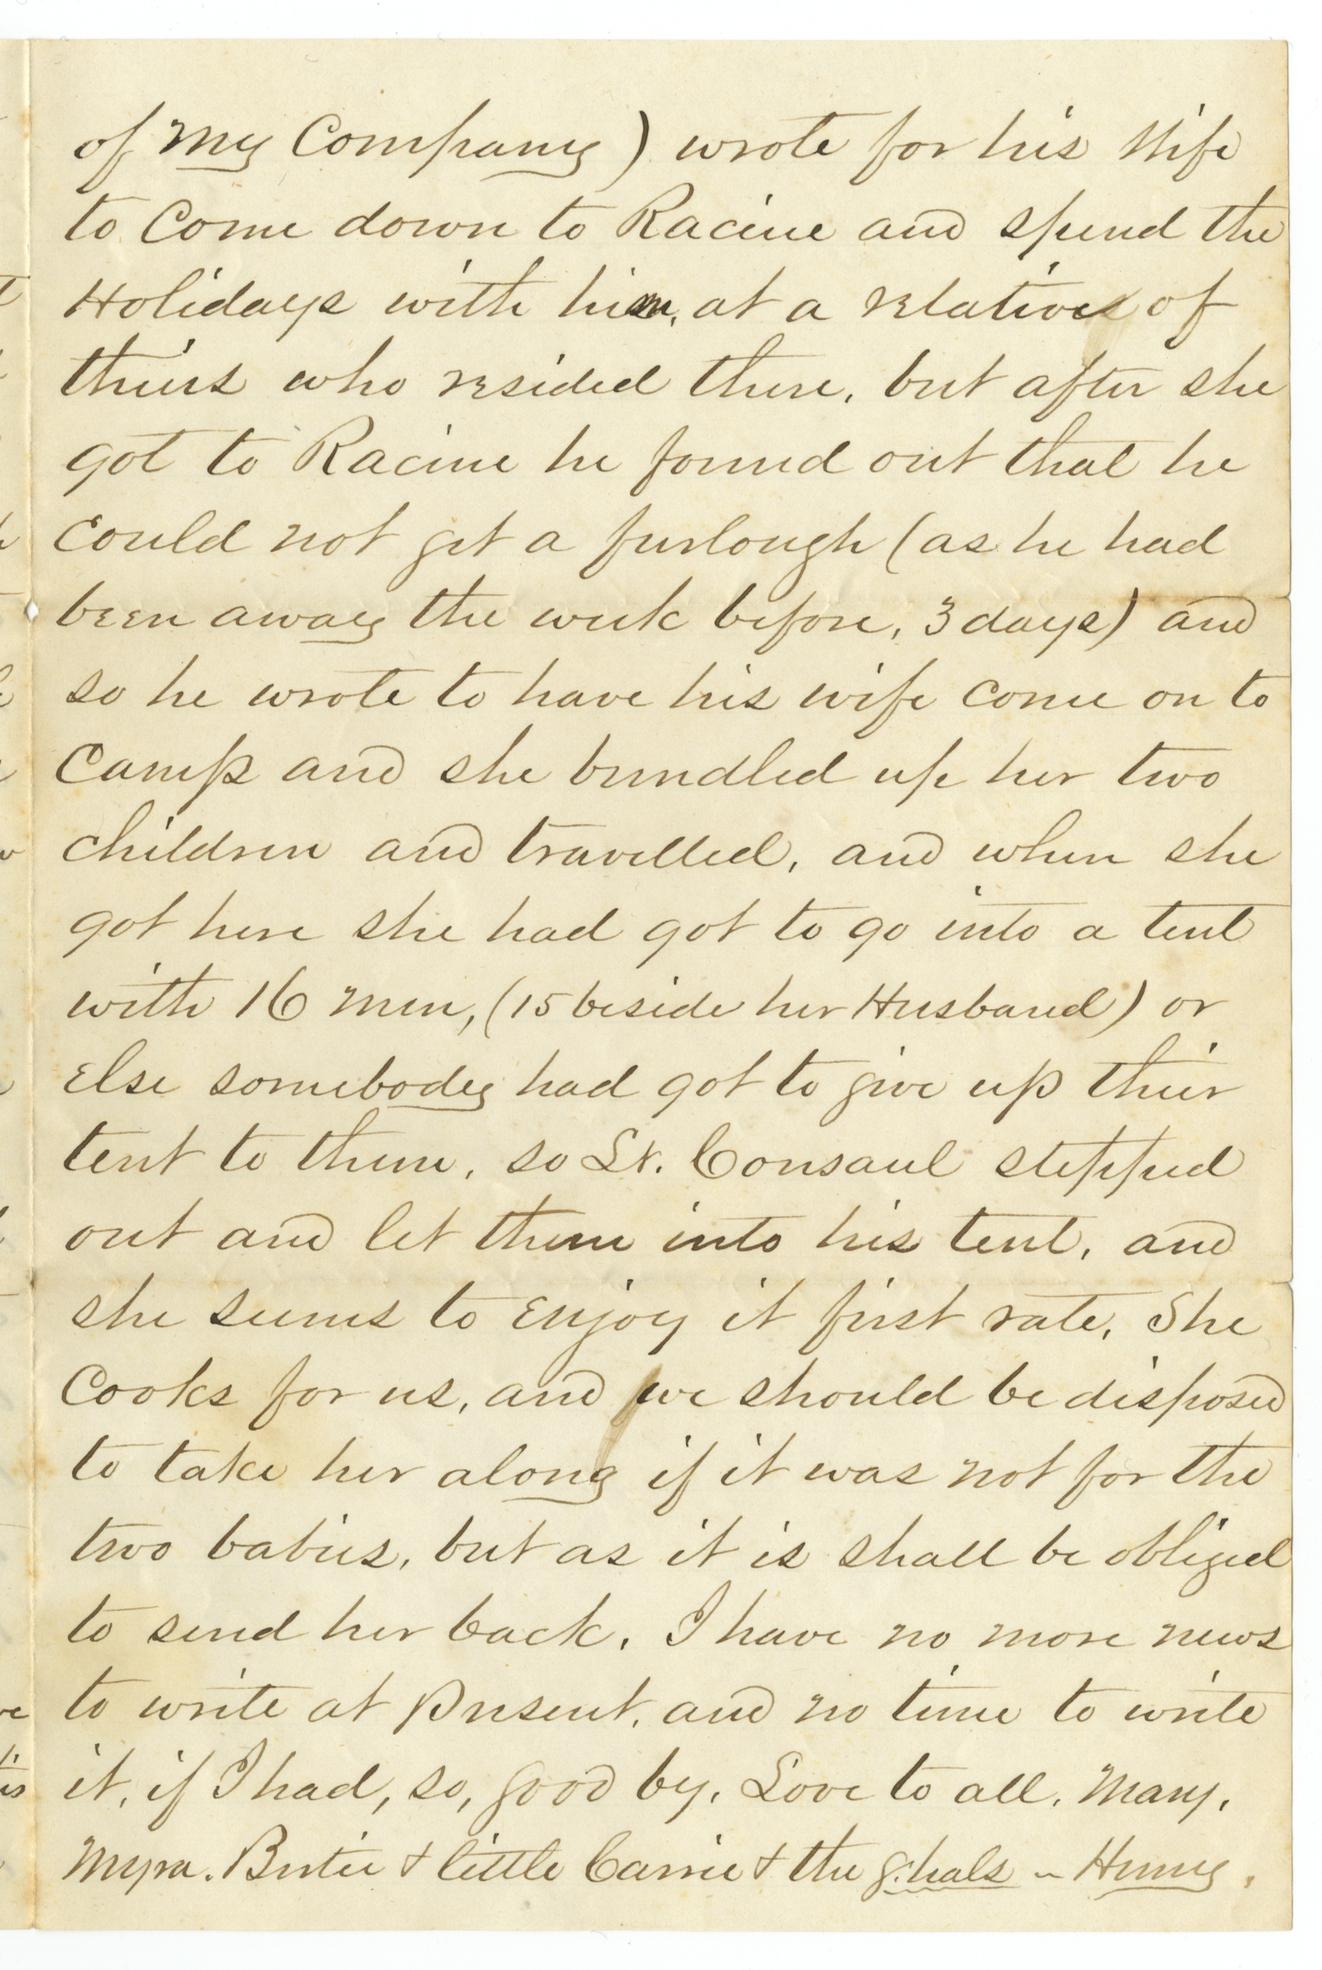 of My Company) wrote for his Wife
to Come down to Racine and spend the
Holidays with him, at a relatives of
theirs who resided there, but after she
got to Racine he found out that he
Could not get a furlough (as he had
been away the week before, 3 days) and
so he wrote to have his wife come on to
Camp and she bundled up her two
children and travelled, and when she
got here she had got to go into a tent
with 16 men, (15 beside her Husband) or
Else somebody had got to give up their
tent to them, so Lt. Consaul stepped
out and let them into his tent, and
she seems to Enjoy it first rate, She
Cooks for us, and we should be disposed
to take her along if it was not for the
two babies, but as it is shall be obliged
to send her back. I have no more news
to write at Present, and no time to write
it, if I had, so, good by. Love to all. Mary,
Myra. Bertie & little Carrie & the g'hals - Henry.